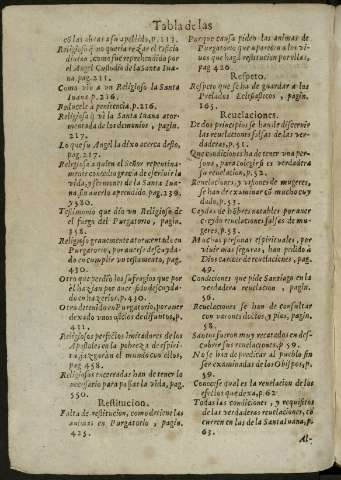 Tabla de las
en las obras a su apellido, p.213.
Religioso q̃ no queria rezar el Oficio
divino, como fue reprehendido por
el Angel Custodio de la Santa Iua-
na, pag. 211.
Como vio a un Religioso la Santa
Iuana, p. 216.
Reducele a penitencia, p. 216.
Religioso q̃ vè la Santa Iuana ator-
mentado de los demonios, pagin.
217.
Lo que su Angel la dixo acerca desto,
pag. 217.
Religioso a quien el Señor repentina-
mente concedio gracia de escrivir la
vida, y sermones de la Santa Iua-
na, sin averlo aprendido pag. 239.
Testimonio que dia un Religioso de
el fuego del Purgatorio, pagin.
358.
Religioso gravemente atormentado en
Purgatorio, por aver descuyda-
do en cumplir un testamento, pag.
430.
Otro que perdiò los sufragios que por
el hazian por aver sido descuyda-
do en hazerlos, p. 430.
Otro detenido en Purgatorio, por aver
dexado unos oficios de difuntos, p.
431.
Religiosos perfectos imitadores de los
Apostoles en la pobreza de espiri-
tu, juzgaràn el mundo con ellos,
pag 458.
Religiosos encerrados han de tener lo
necessario para passar la vida, pag.
550.
Restitucion.
Falta de restitucion, como detiene las
animas en Purgatorio, pagin.
425.
Porque causa piden las animas de
Purgatorio que aparecen a los vi-
vos que hagã restitucion por ellas,
pag 426
Respeto.
Respeto que se ha de guardar a los
Prelados Eclesiasticos, pagin.
165.
Revelaciones.
De dos principios se han de discernir
las revelaciones falsas de las ver-
daderas, p. 51.
Que condiciones ha de tener una per-
sona, para colegir si es verdadera
su revelacion, p. 52.
Revelaciones, y visiones de mugeres,
se han de examinar cõ mucho cuy
dado, p. 53.
Caydas de hõbres notables por aver
creydo revelaciones falsas de mu-
geres, p. 53.
Muchas personas espirituales, por
vivir mas seguras, han pedido à
Dios carecer de revelaciones, pag.
49.
Condiciones que pide Santiago en la
verdadera revelacion, pagin.
56.
Revelaciones se han de consultar
con varones doctos, y pios, pagin.
58.
Santos fueron muy recatados en des-
cubrir sus revelaciones, p 59.
No se hã de predicar al pueblo sin
ser examinadas de los Obispos, p.
59.
Conocese qual es la revelacion de los
efectos que dexa, p. 62
Todas las condiciones, y requisitos
de las verdaderas revelaciones, cõ
curren en las de la Santa Iuana, p.
63.
Al-